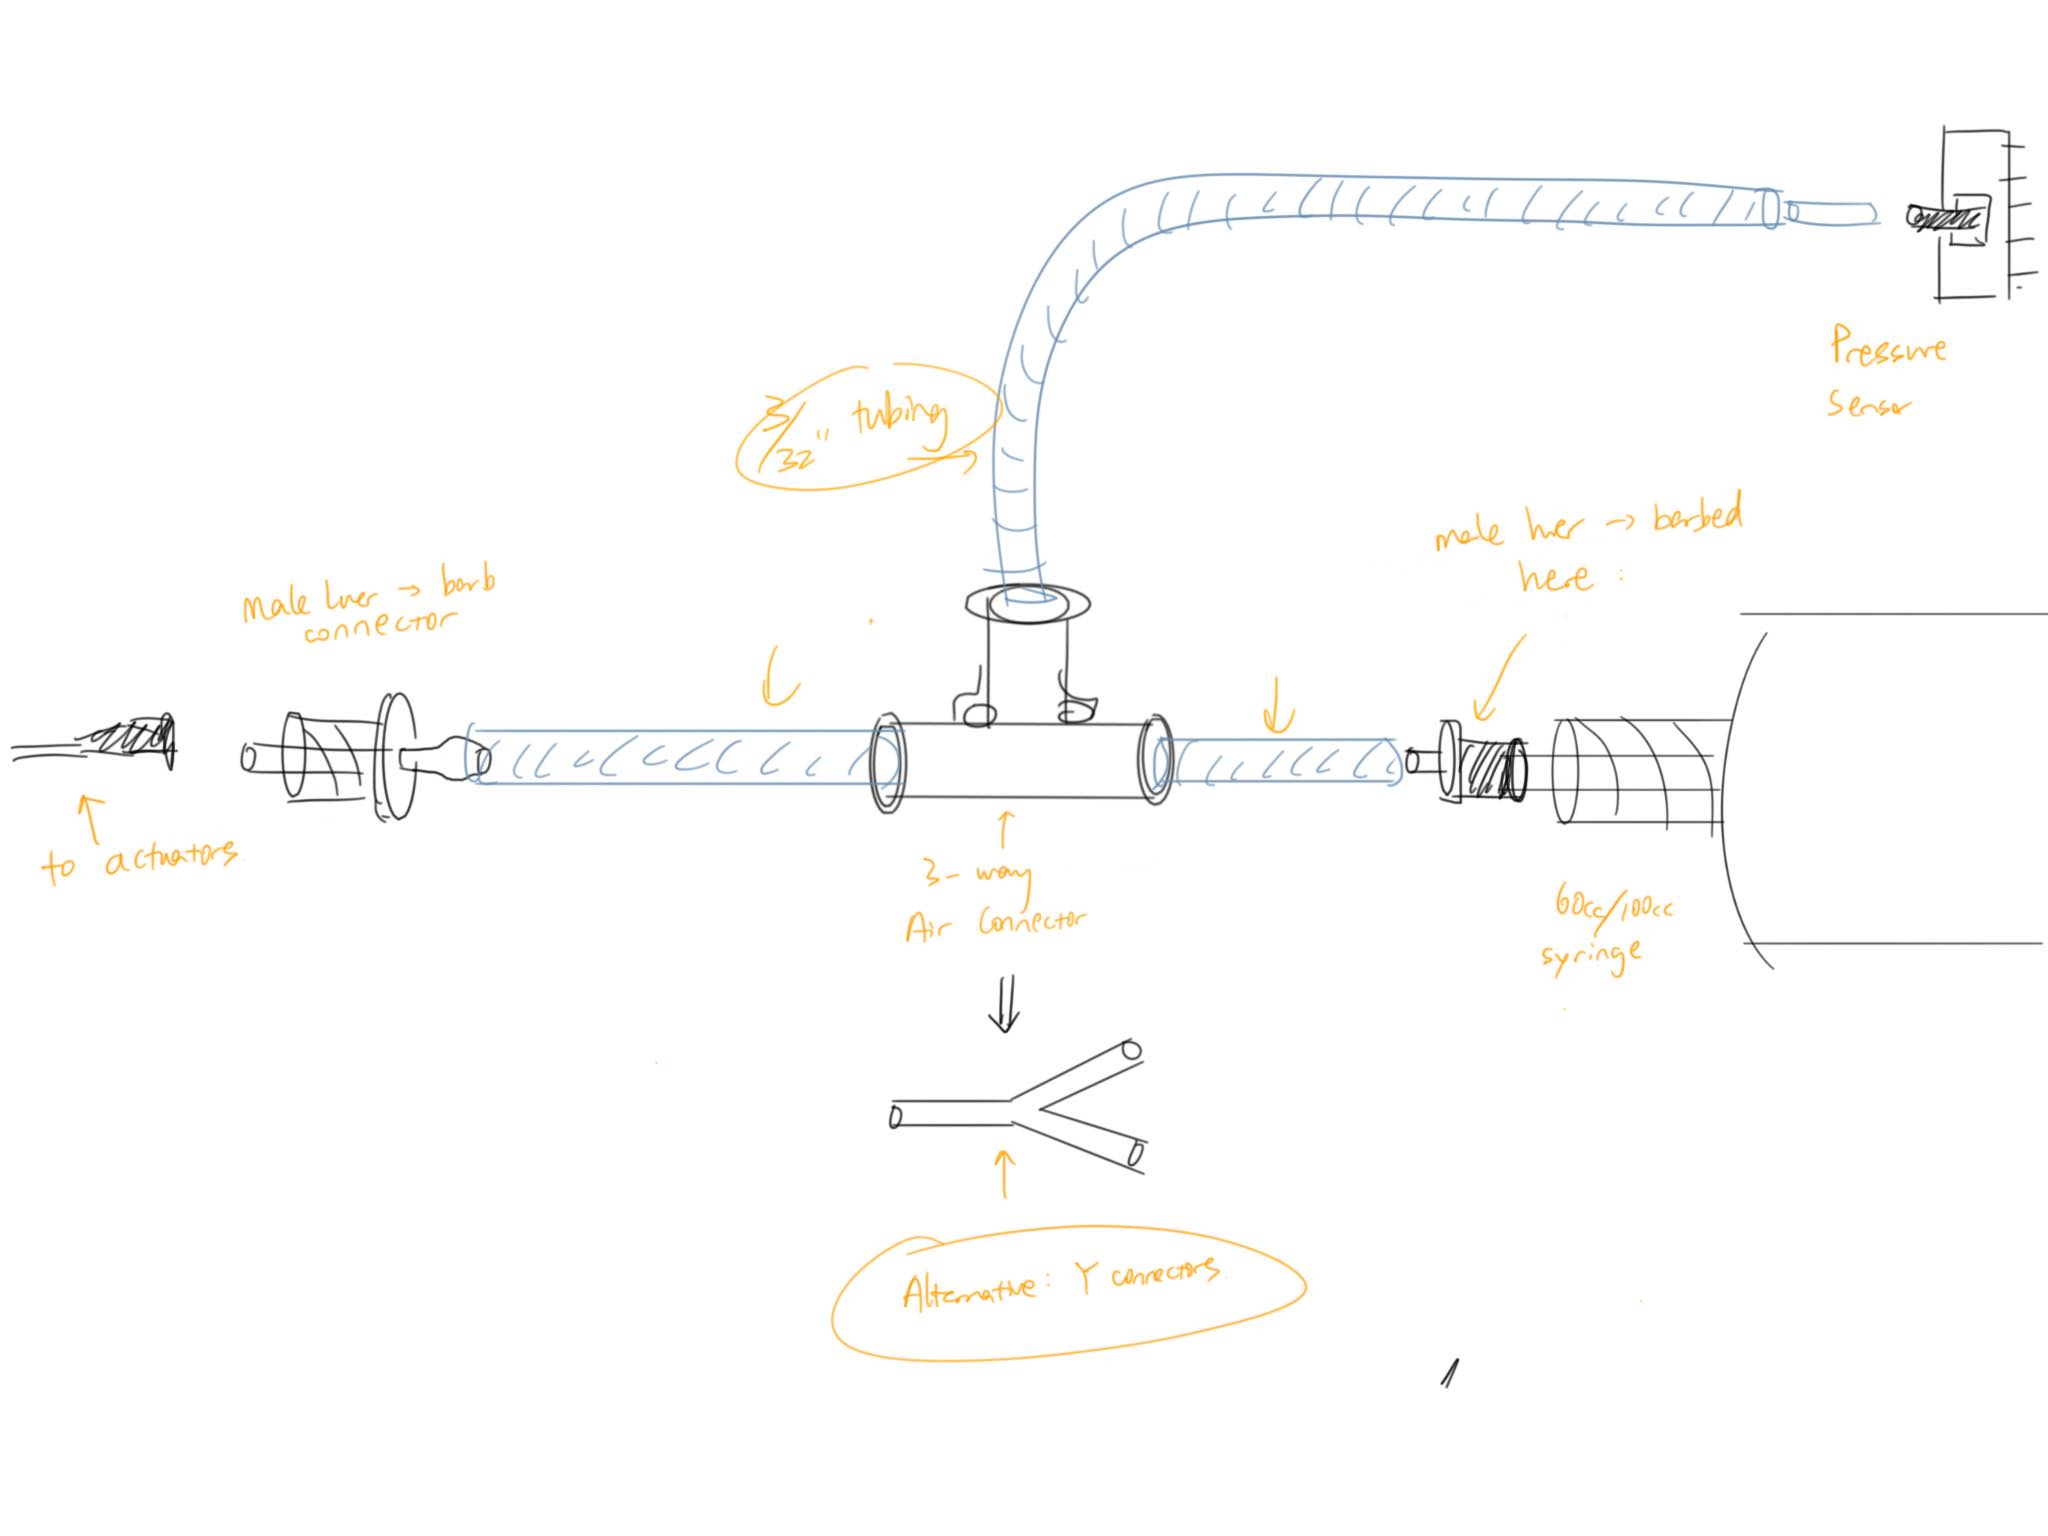 Pressure
Sensor
3/32" tubing
male luer → barbed
here :
Male luer → barb
connector
to actuators
3-way
Air Connector
60cc/100cc
syringe
Alternative: Y connectors